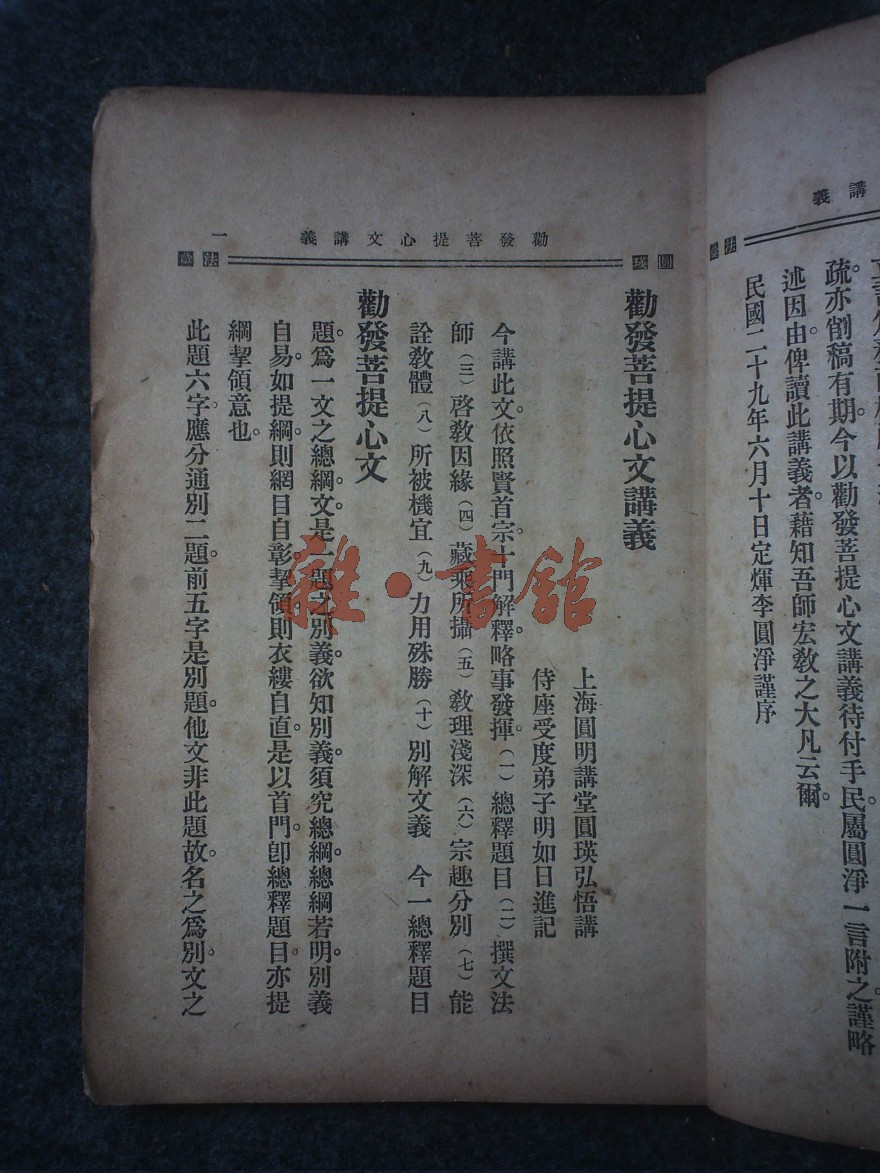 講義
疏亦削稿有期。今以勸發菩提心文講義待付手民。屬圓淨一言附之。謹略
述因由。俾讀此講義者。藉知吾師宏教之大凡云爾。
民國二十九年六月十日定煇李圓淨謹序
勸發菩提心文講義 一
圓瑛 法彙
勸發菩提心文講義
上海圓明講堂圓瑛弘悟講
侍座受度弟子明如日進記
今講此文。依照賢首宗十門解釋。略事發揮。(一)總釋題目(二)撰文法
師(三)啓教因緣(四)藏乘所攝(五)教理淺深(六)宗趣分別(七)能
詮教體(八)所被機宜(九)力用殊勝(十)別解文義 今一總釋題目
勸發菩提心文
題爲一文之總綱。文是一題之別義。欲知別義。須究總綱。總綱若明。別義
自易。如提綱。則網目自彰。挈領。則衣縷自直。是以首門。卽總釋題目。亦提
綱挈領意也。
此題六字。應分通別二題。前五字是別題。他文非此題故。名之爲別。文之
雜·書館